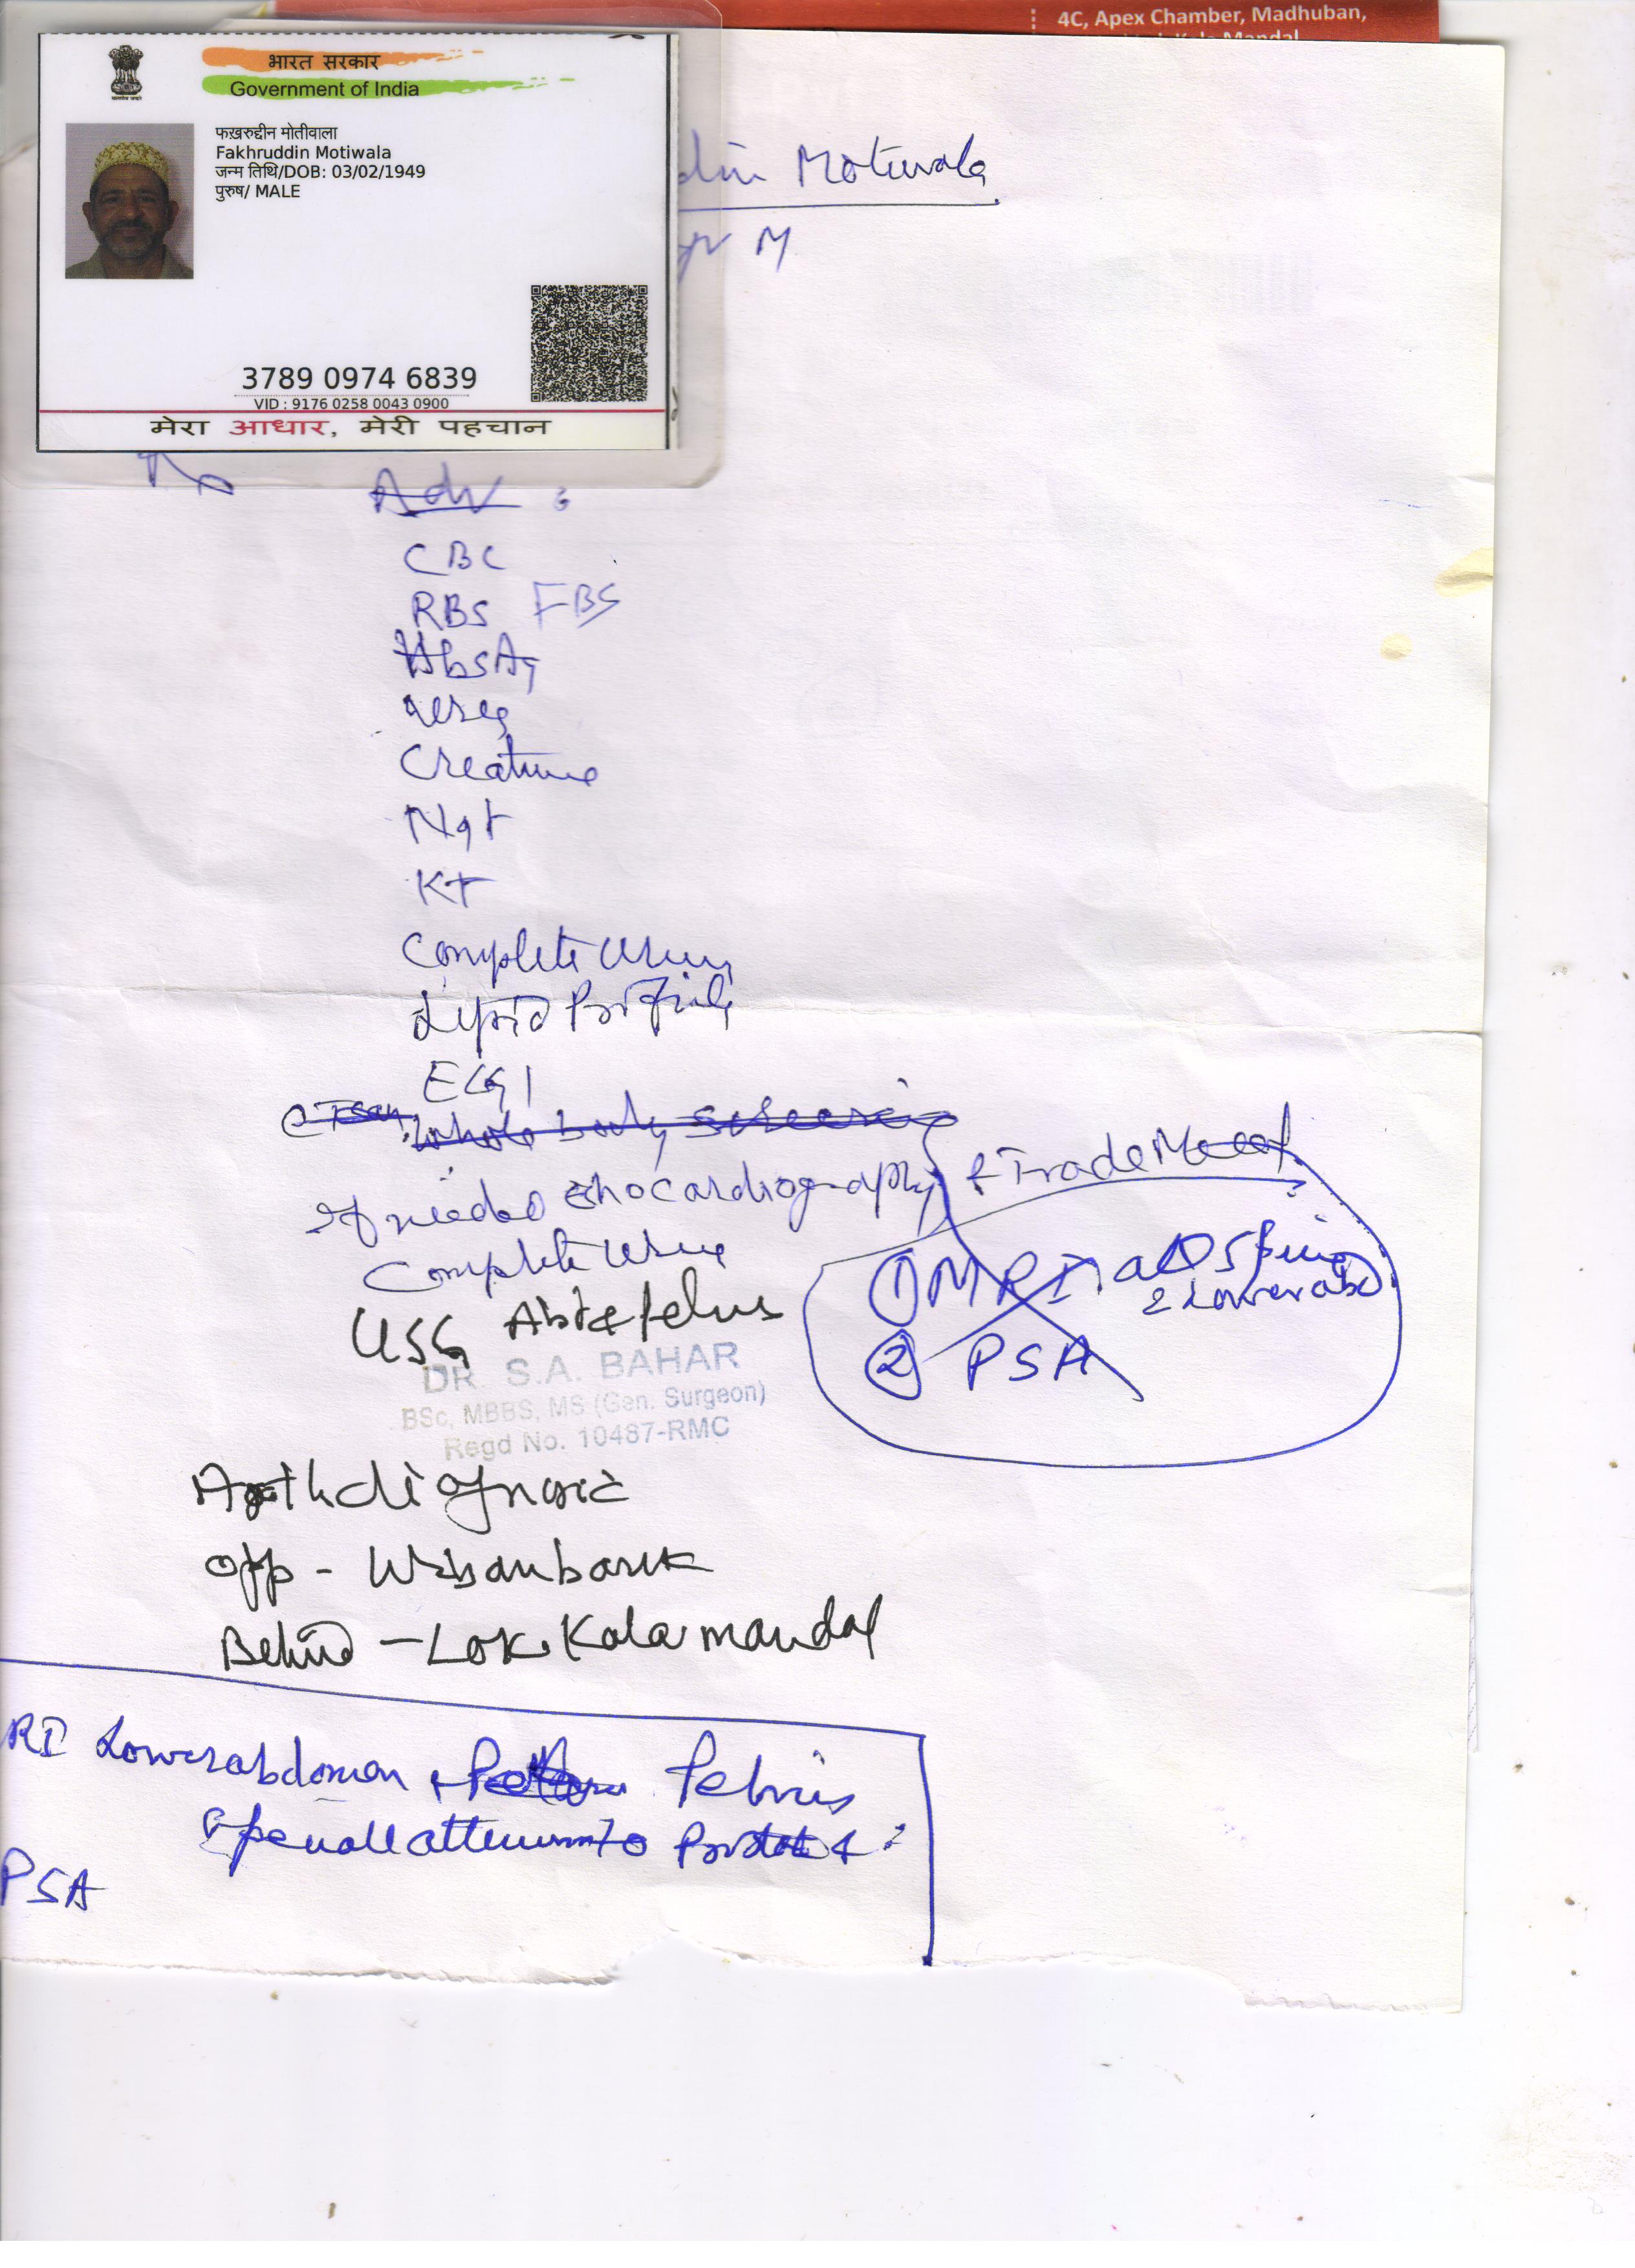 4C, Apex Chamber, Madhuban,
भारत सरकार
Government of India
फखरुद्दीन मोतीवाला
Fakhruddin Motiwala
जन्म तिथि/DOB: 03/02/1949
पुरुष/ MALE
3789 0974 6839
VID : 9176 0258 0043 0900
मेरा आधार, मेरी पहचान
din Motiwala
yr M
Adv :
CBC
RBS FBS
HbsAg
urea
Creatinine
Na+
K+
Complete urine
Lipid Profile
ECG
CT Scan whole body screening
If needed Echocardiography & Trade Meet
Complete urine
① MRI all Spine
& Lower abd
② PSA
USG Abd & Pelvis
DR. S.A. BAHAR
BSc, MBBS, MS (Gen. Surgeon)
Regd No. 10487-RMC
Arth diagnosic
opp - Urban bank
Behind - Lok Kala mandal
RI Lower abdomen + Pelvis
to Prostate &
PSA